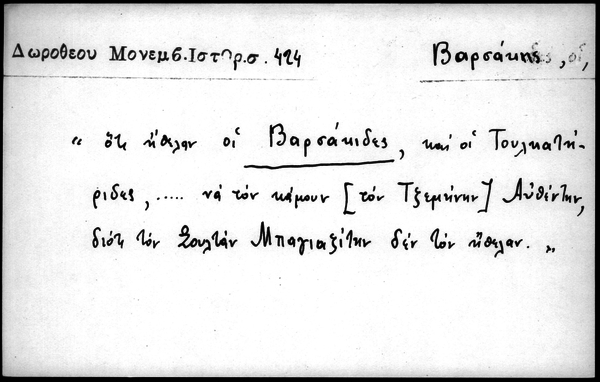 Δωροθεου Μονεμβ.Ιστορ.σ. 424
Βαρσάκιδες, οἱ,
« ὅτι ἤθελαν οἱ Βαρσάκιδες, καί οἱ Τουλκατή-
ριδες, ..... νά τόν κάμουν [τόν Τζεμήνην] Αὐθέντην,
διότι τόν Σουλτάν Μπαγιαζίτην δέν τόν ἤθελαν. »